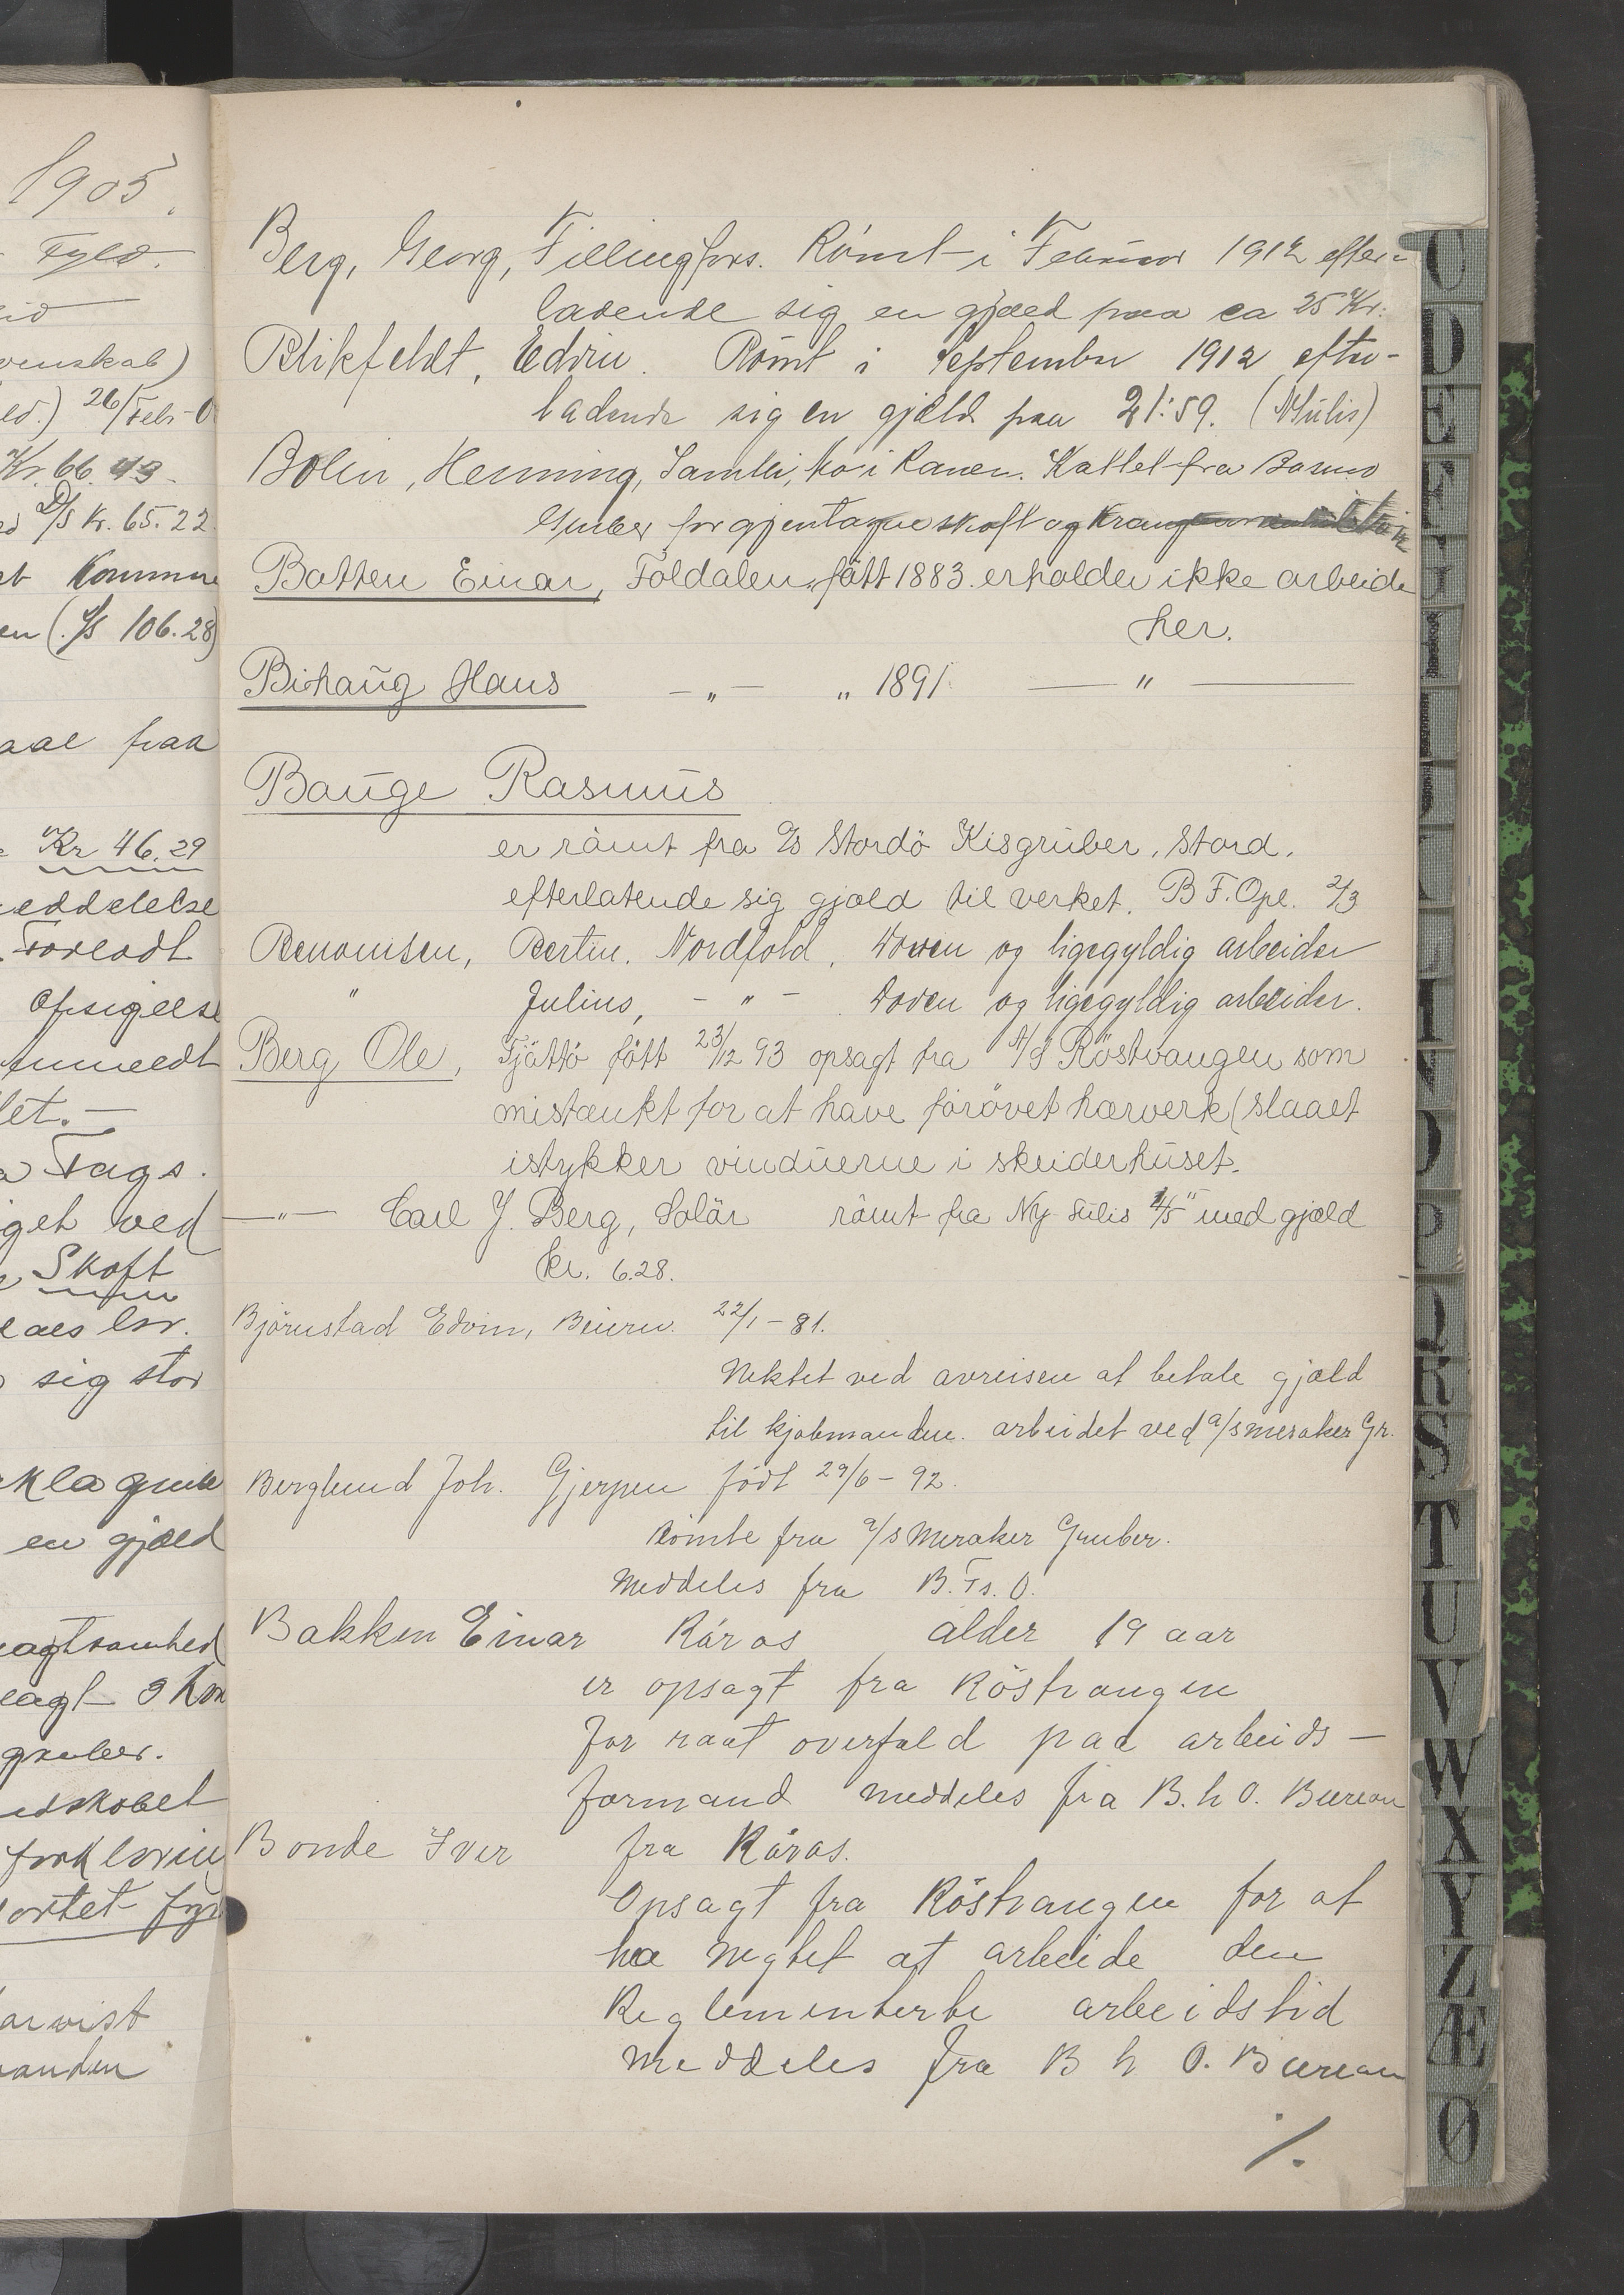 1905.
Fyld.
venskab)
26/Febr-0
Kr. 66.43.
D/S Kr. 65.22
Komme
106.28)
paa
Kr 46.29
eddelelse
Foreadt
Opsigelse
let. —
Tags.
get ved
Skoft
sig stor
en gjæld
agtsomhed
gruber.
Berg, Georg, Fillingfors. Römt i Februar 1912 efter=
ladende sig en gjæld paa ca 25 Kr.
Blikfeldt, Edvin. Römt i September 1912 efter-
ladende sig en gjæld paa 21:59. (N Sulis)
Bolin, Henning, Mo i Ranen. Kastet fra Basmo
Gruber for gjentagne skoft og
Batten Einar, Foldalen, fött 1883. erholder ikke arbeide
her.
Bihaug Hans — „ — „ 1891 — „ —
Bauge Rasmus
er römt fra A/S Stordö Kisgruber, Stord.
efterlatende sig gjæld til verket. B F. Opl. 2/3
Benonisen, Bertin. Nordfold. Doven og ligegyldig arbeider
" Julius, — " — . Doven og ligegyldig arbeider.
Berg Ole, Tjöttö fött 23/12 93 opsagt fra A/S Röstvangen som
mistænkt for at have forövet hærverk (slaaet
istykker vinduerne i skeiderhuset.
— „ — Carl J. Berg, Solör römt fra Ny-Sulis med gjæld
kr. 6.28.
Björnstad Edvin, Beiern. 22/1 - 81.
Nektet ved avreisen at betale gjæld
til kjöbmanden. arbeidet ved a/s Meraker Gr.
Berglund Joh. Gjerpen födt 29/6 - 92.
römte fra a/s Meraker Gruber.
Meddeles fra B. Fs. O.
Bakken Einar Röros alder 19 aar
er opsagt fra Röstvangen
for raat overfald paa arbeids —
formand meddeles fra B. h O. Bureau
Bonde Iver fra Röros.
Opsagt fra Röstvangen for at
ha negtet at arbeide den
Reglementerte arbeidstid
Meddeles fra B h O. Bureau
/.
C
D
E
F
N
O
P
R
S
T
U
V
W
X
Y
Z
Æ
Ø